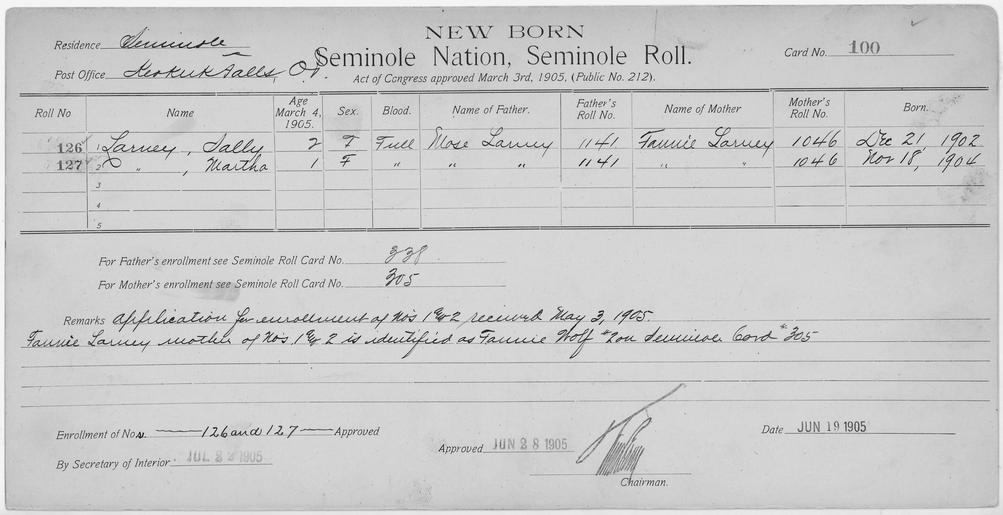 NEW BORN
Seminole Nation, Seminole Roll.
Act of Congress approved March 3rd, 1905, (Public No. 212).
Residence Seminole
Post Office Keokuk Falls, O.T.
Card No. 100
Roll No Name Age March 4, 1905. Sex. Blood. Name of Father. Father's Roll No. Name of Mother Mother's Roll No. Born.
126 1 Larney, Sally 2 F Full Mose Larney 1141 Fannie Larney 1046 Dec 21, 1902
127 2 " , Martha 1 F " " " 1141 " " 1046 Nov 18, 1904
3
4
5
For Father's enrollment see Seminole Roll Card No. 338
For Mother's enrollment see Seminole Roll Card No. 305
Remarks Application for enrollment of Nos 1 & 2 received May 3, 1905
Fannie Larney mother of Nos 1 & 2 is identified as Fannie Wolf #2 on Seminole Card #305
Enrollment of Nos. 126 and 127 Approved
By Secretary of Interior JUL 22 1905
Approved JUN 28 1905
Chairman.
Date JUN 19 1905